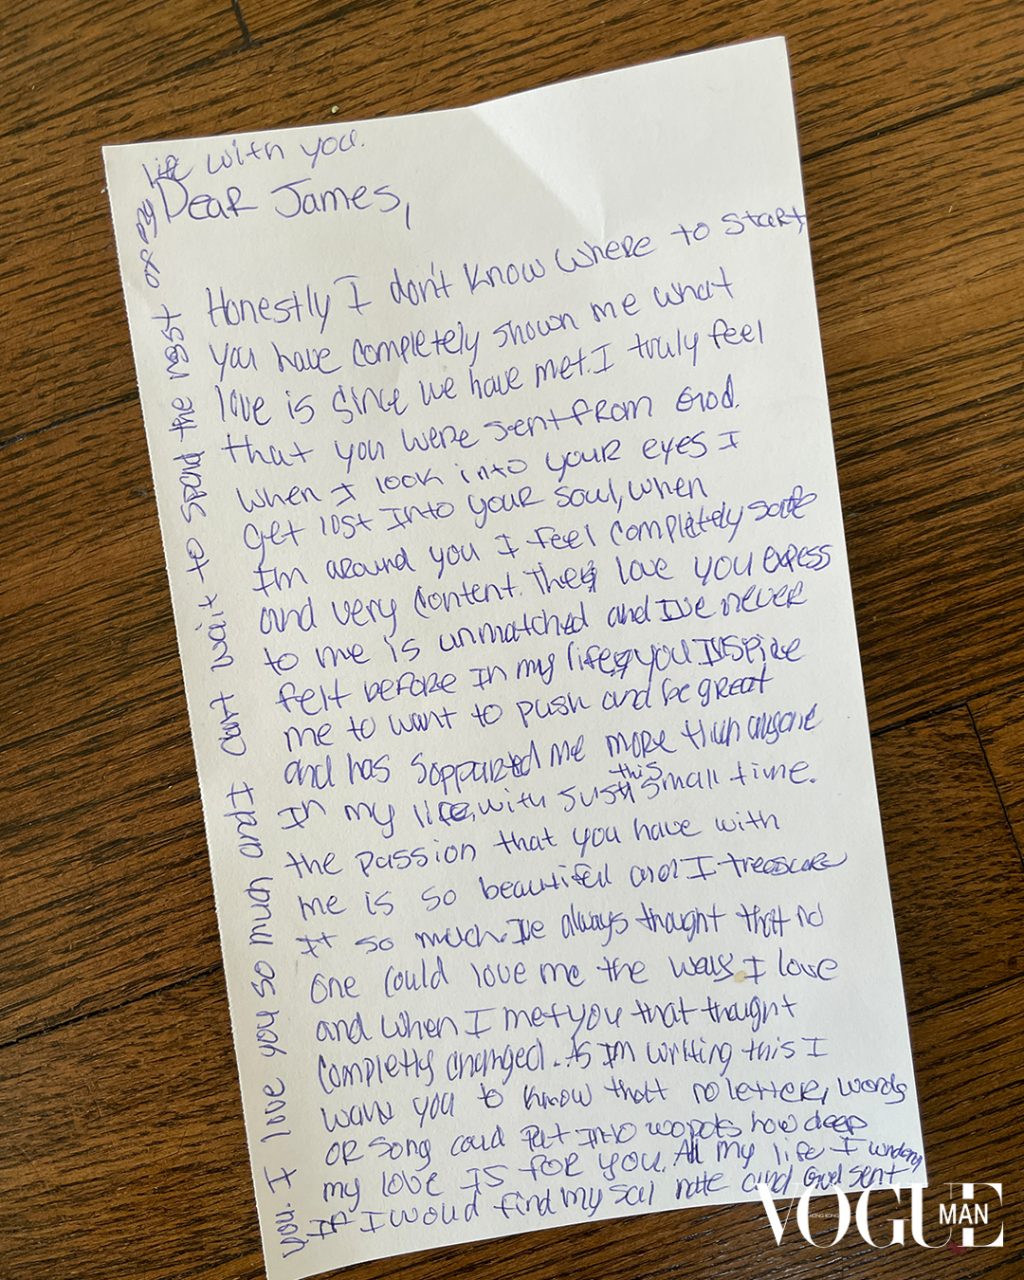 Dear James,
Honestly I don't know where to start,
you have completely shown me what
love is since we have met. I truly feel
that you were sent from God.
when I look into your eyes I
get lost into your soul, when
I'm around you I feel completely safe
and very content. The love you express
to me is unmatched and I've never
felt before in my life, you Inspire
me to want to push and be great
and has supported me more than anyone
In my life, with just this small time.
the passion that you have with
me is so beautiful and I treasure
It so much. I've always thought that no
one could love me the way I love
and when I met you that thought
completly changed. As I'm writing this I
want you to know that no letter, words
or song could put Into words how deep
my love Is for you. All my life I wondered
If I would find my soul mate and God sent
you. I love you so much and I can't wait to spend the rest of my
life with you.
VOGUE
HONG KONG
MAN